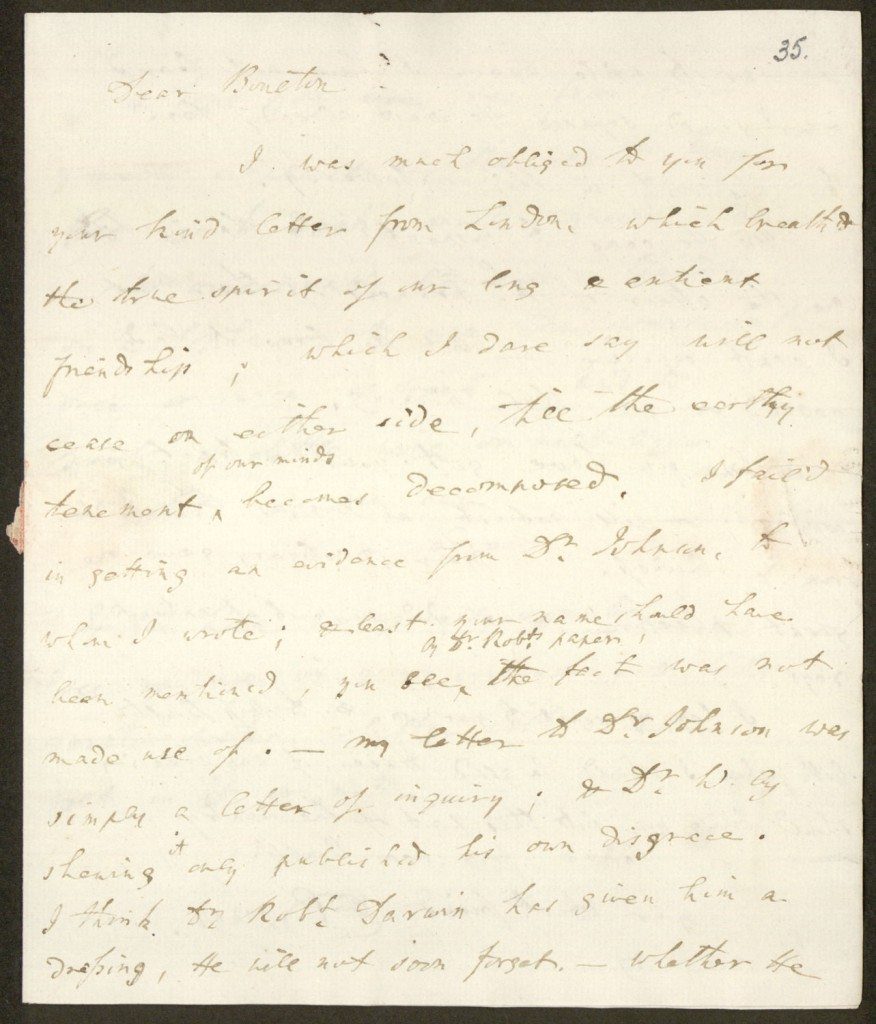 35.
Dear Boulton
I was much obliged to you for
your kind letter from London, which breath'd
the true spirit of our long & antient
friendship; which I dare say will not
cease on either side, till the earthy
of our minds
tenement ‸ becomes decomposed. I fail'd
in getting an evidence from Dr. Johnson, to
whom I wrote; & least your name should have
by Dr. Robts. paper,
been mentioned, you see ‸ the fact was not
made use of. — my letter to Dr. Johnson was
simply a letter of inquiry; & Dr. W. by
it
shewing only published his own disgrace.
I think Dr. Robt. Darwin has given him a
dressing, He will not soon forget. — whether He